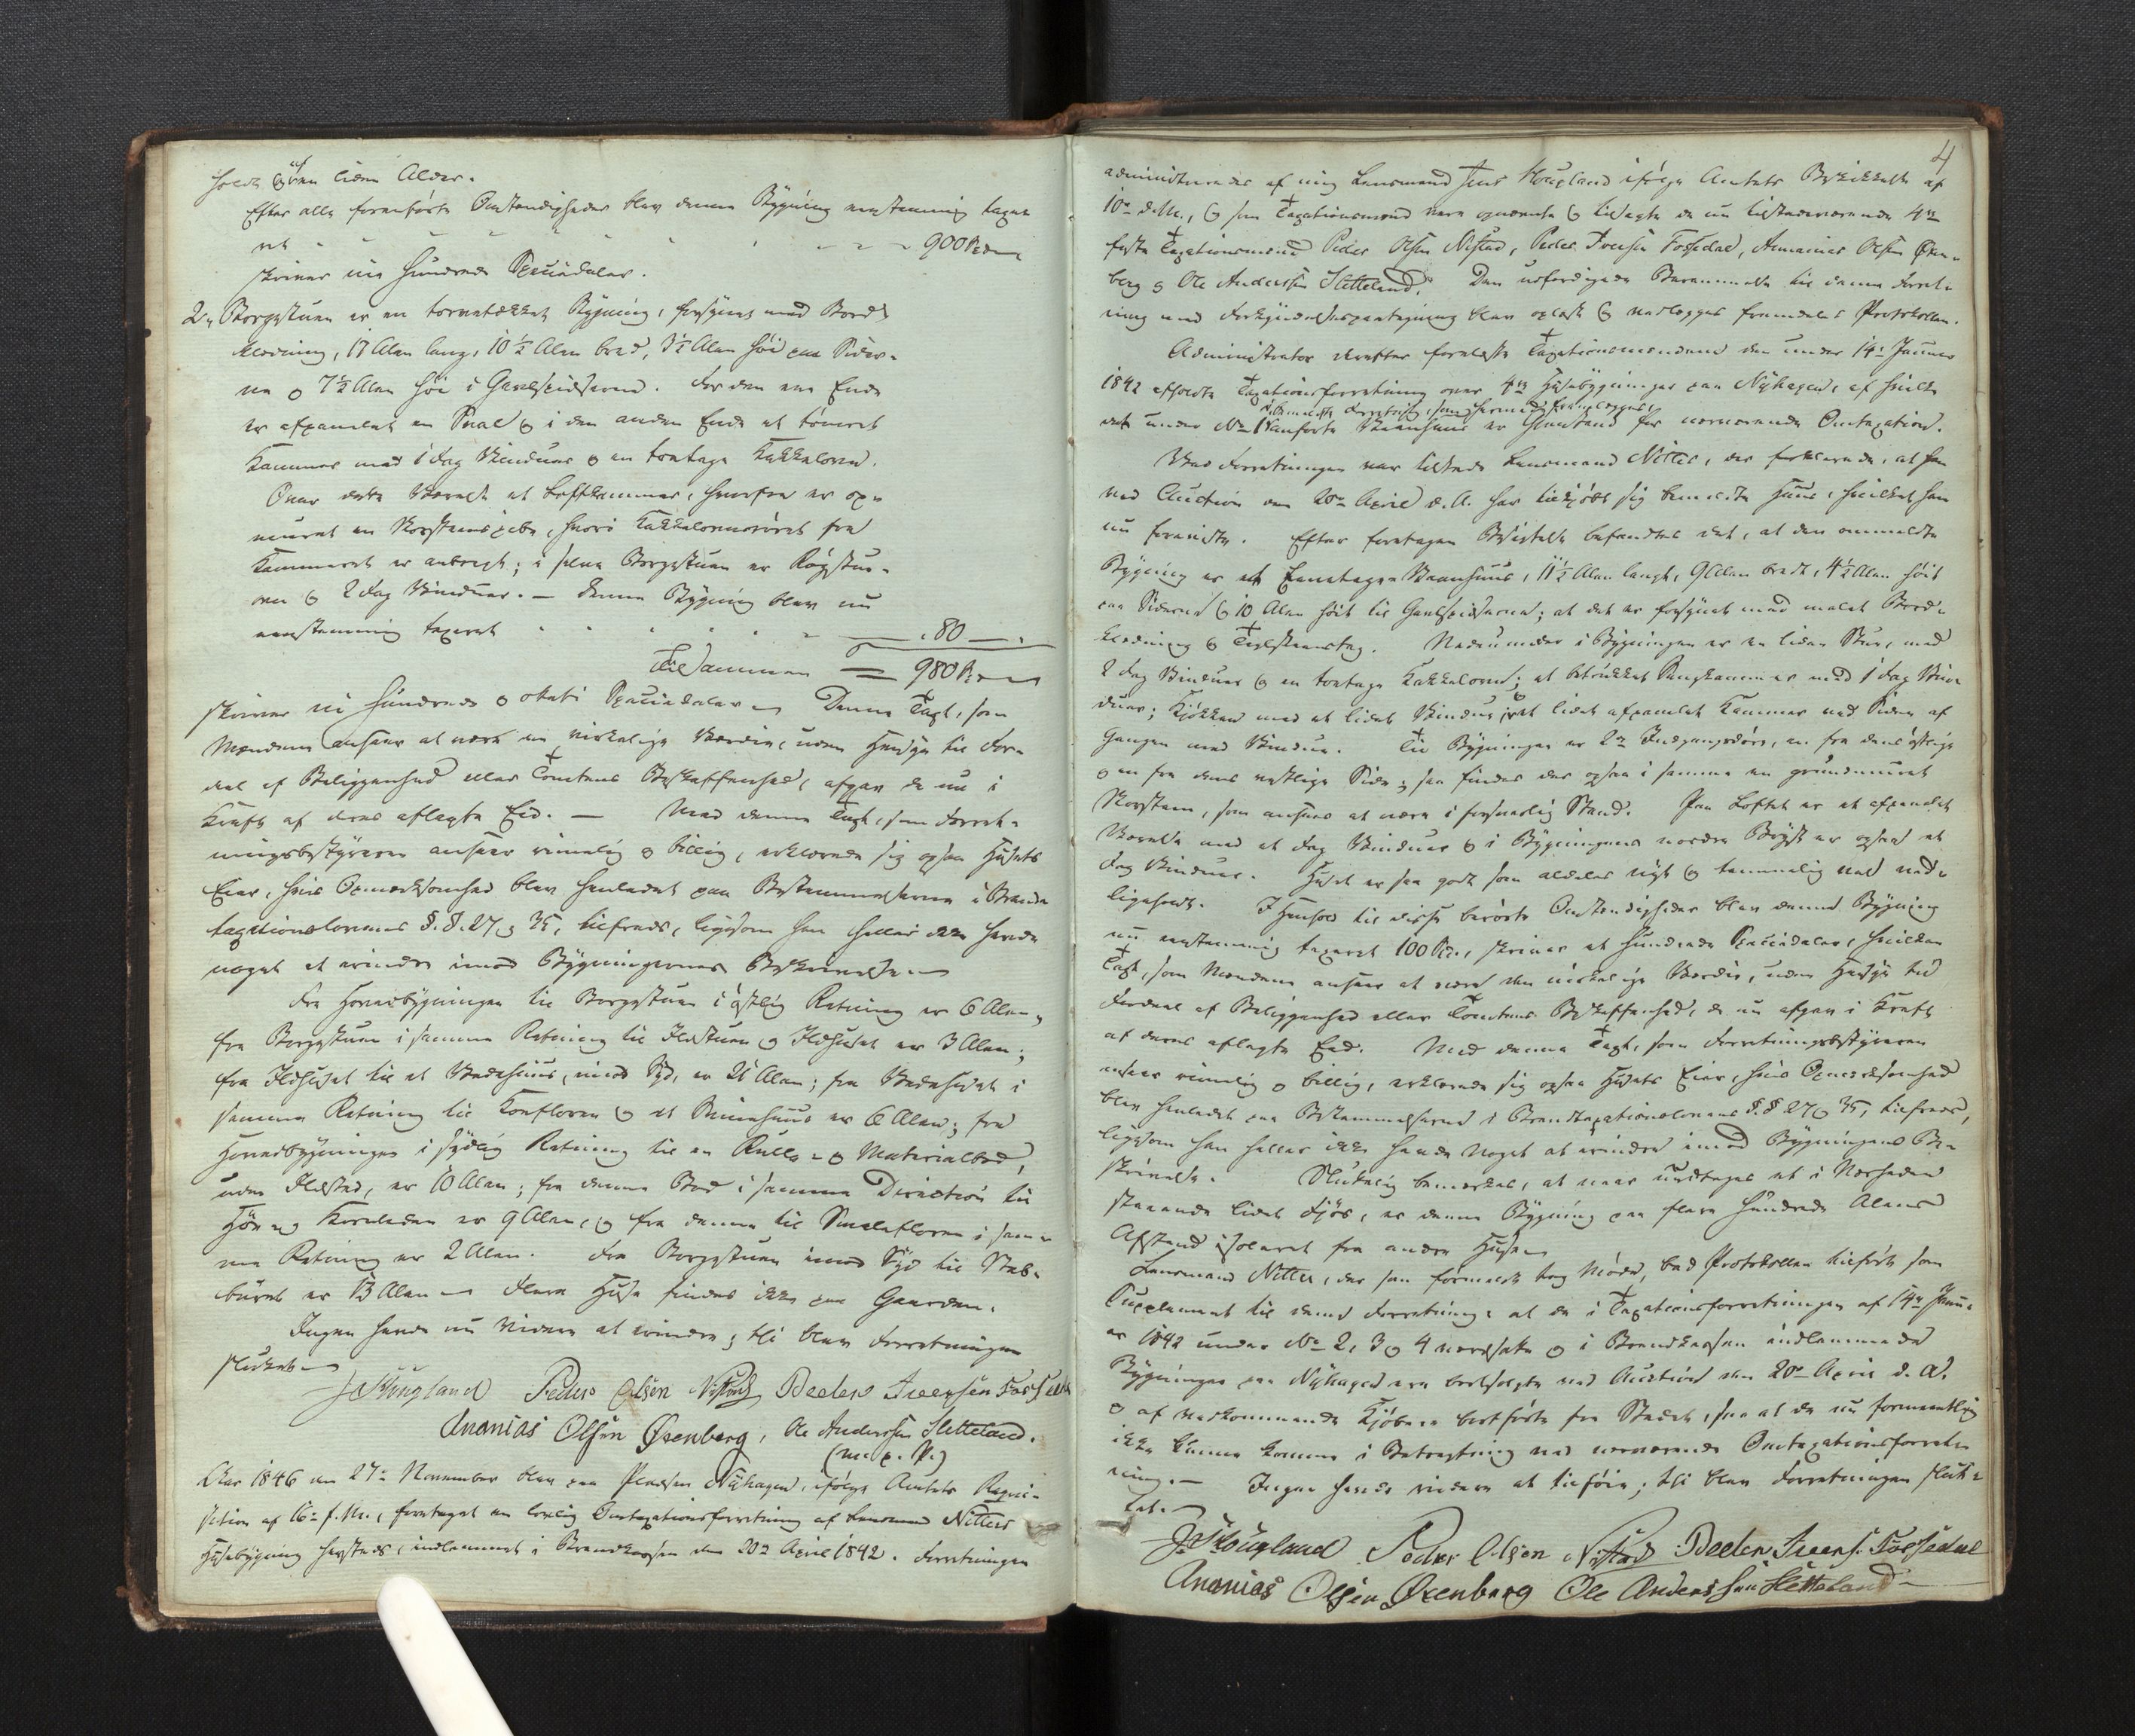 holdt og af liden Alder.
Efter alle foranførte Omstændigheder blev denne Bygning eenstemmig taxe-
ret - - - - - - 900 Spd.
skriver ni Hundrede Speciedaler.
2, Borgestuen er en torvetækket Bygning, forsynet med Bord-
klædning, 17 Alen lang, 10½ Alen bred, 3½ Alen høi paa Sider-
ne og 7½ Alen høi i Gavlspidserne. Ved den ene Ende
er afpanelet en Sval og i den anden Ende et tømret
Kammer med 1 Fag Vinduer og en toetages Kakkelovn.
Over dette Værelse et Loftkammer, hvorfra er op-
muret en Skorsteenspibe, hvori Kakkelovnsrøret fra
Kammeret er anbragt; i selve Borgestuen er Røgstue-
ovn og 2 Fag Vinduer. – Denne Bygning blev nu
eenstemmig taxeret - - - - 80 -
Tilsammen = 980 Spd.
skriver ni Hundrede og otteti Speciedaler. Denne Taxt, som
Mændene ansaaer at være den virkelige Værdie, uden Hensyn til For-
deel af Beliggenhed eller Tomtens Beskaffenhed, afgav de nu i
Kraft af deres aflagte Eed. – Med denne Taxt, som Forret-
ningsbestyreren ansaaer rimelig og billig, erklærede sig ogsaa Husets
Eier, hvis Opmærksomhed blev henledet paa Bestemmelserne i Brand-
taxationslovens §.§. 27 og 35, tilfreds, ligesom han heller ikke havde
noget at erindre imod Bygningernes Beskrivelse.
Fra Hovedbygningen til Borgestuen i østlig Retning er 6 Alen,
fra Borgestuen i samme Retning til Ildstuen og Ildhuset er 3 Alen;
fra Ildhuset til et Vedehuus, imod Syd, er 21 Alen; fra Vedehuset i
samme Retning til Kofloren og et Svinehuus er 6 Alen; fra
Hovedbygningen i sydlig Retning til en Rulle- og Materialbod,
uden Ildsted, er 10 Alen; fra denne Bod i samme Direction til
Hø- og Kornladen er 9 Alen, og fra denne til Smalefloren i sam-
me Retning er 2 Alen. Fra Borgestuen imod Syd til Stab-
buret er 13 Alen. Flere Huse findes ikke paa Gaarden.
Ingen havde nu videre at erindre; thi blev Forretningen
sluttet.
J. Hougland Peder Olsen Nistad Peder Iversen Fossedal
Ananias Olsen Øxenberg, Ole Anderssen Sletteland.
(m. p. P.)
Aar 1846 den 27de November blev paa Pladsen Nyhagen, ifølge Amtets Requi-
sition af 16de f. M., foretaget en lovlig Omtaxationsforretning af Lensmand Nitters
Husebygning sammesteds, indlemmet i Brandkassen den 20de April 1842. Forretningen
4
administreredes af mig Lensmand Jens Hougland ifølge Amtets Beskikkelse af
10de d. M., og som Taxationsmænd vare opnævnte og tilsagte de nu tilstedeværende 4re
faste Taxationsmænd Peder Olsen Nistad, Peder Iversen Fossedal, Annanias Olsen Øxen-
berg og Ole Anderssen Sletteland. Den udfærdigede Berammelse til denne Forret-
ning med Forkyndelsespaategning blev oplæst og vedlægges fremdeles Protokollen.
Administrator derefter forelæste Taxationsmændene den under 14de Januar
1842 afholdte Taxationsforretning over 4re Husebygninger paa Nyhagen, af hvilke
det under No 1 i bemeldte Forretning, som hermed fremlægges, anførte Vaaningshuus er Gjenstand for nærværende Omtaxation.
Ved Forretningen var tilstede Lensmand Nitter, der forklarede, at han
ved Auction den 20de April d. A. har tilkjøbt sig bemeldte Huus, hvilket han
nu foreviste. Efter foretagen Besigtelse befandtes det, at den ommeldte
Bygning er et Eenetages Vaanhuus, 11½ Alen langt, 9 Alen bredt, 4½ Alen høit
paa Siderne og 10 Alen høit til Gavlspidserne; at det er forsynet med malet Bord-
klædning og Teglsteenstag. Nedenunder i Bygningen er en liden Stue, med
2 Fag Vinduer og en toetages Kakkelovn; et betrukket Sengkammer med 1 Fag Vin-
duer; Kjøkken med et lidet Vindue og et lidet afpanelet Kammer ved Siden af
Gangen med Vindue. Til Bygningen er 2de Indgangsdøre, en fra dens østlige
og en fra dens vestlige Side; saa findes der ogsaa i samme en grundmuret
Skorsteen, som ansees at være i forsvarlig Stand. Paa Loftet er et afpanelet
Værelse med et Fag Vinduer og i Bygningens nordre Bryst er ogsaa et
Fag Vinduer. Huset er saa godt som aldeles nyt og temmelig vel ved-
ligeholdt. I Henhold til disse berørte Omstændigheder blev denne Bygning
nu eenstemmig taxeret 100 Spd., skriver et Hundrede Speciedaler, hvilken
Taxt, som Mændene ansaaer at være den virkelige Værdie, uden Hensyn til
Fordeel af Beliggenhed eller Tomtens Beskaffenhed, de nu afgav i Kraft
af deres aflagte Eed. Med denne Taxt, som Forretningsbestyreren
ansaaer rimelig og billig, erklærede sig ogsaa Husets Eier, hvis Opmærksomhed
blev henledet paa Bestemmelserne i Brandtaxationslovens §.§. 27 og 35, tilfreds,
ligesom han heller ikke havde Noget at erindre imod Bygningens Be-
skrivelse. Sluttelig bemærkes, at naar undtages et i Nærheden
staaende lidet Fjøs, er denne Bygning paa flere Hundrede Alens
Afstand isoleret fra andre Huse.
Lensmand Nitter, der som formeldt tog Møde, bad Protokollen tilført som
Supplement til denne Forretning: at de i Taxationsforretningen af 14de Janu-
ar 1842 under No 2, 3 og 4 værdsatte og i Brandkassen indlemmede
Bygninger paa Nyhagen ere bortsolgte ved Auction den 20de April d. A.
og af vedkommende Kjøbere bortførte fra Stedet, saa at de nu formeentlig
ikke kunne komme i Betragtning ved nærværende Omtaxationsforret-
ning. – Ingen havde videre at tilføie; thi blev Forretningen slut-
tet.
J. Hougland Peder Olsen Nistad Peder Ivers. Fossedal
Ananias Olsen Øxenberg Ole Anderssen Sletteland